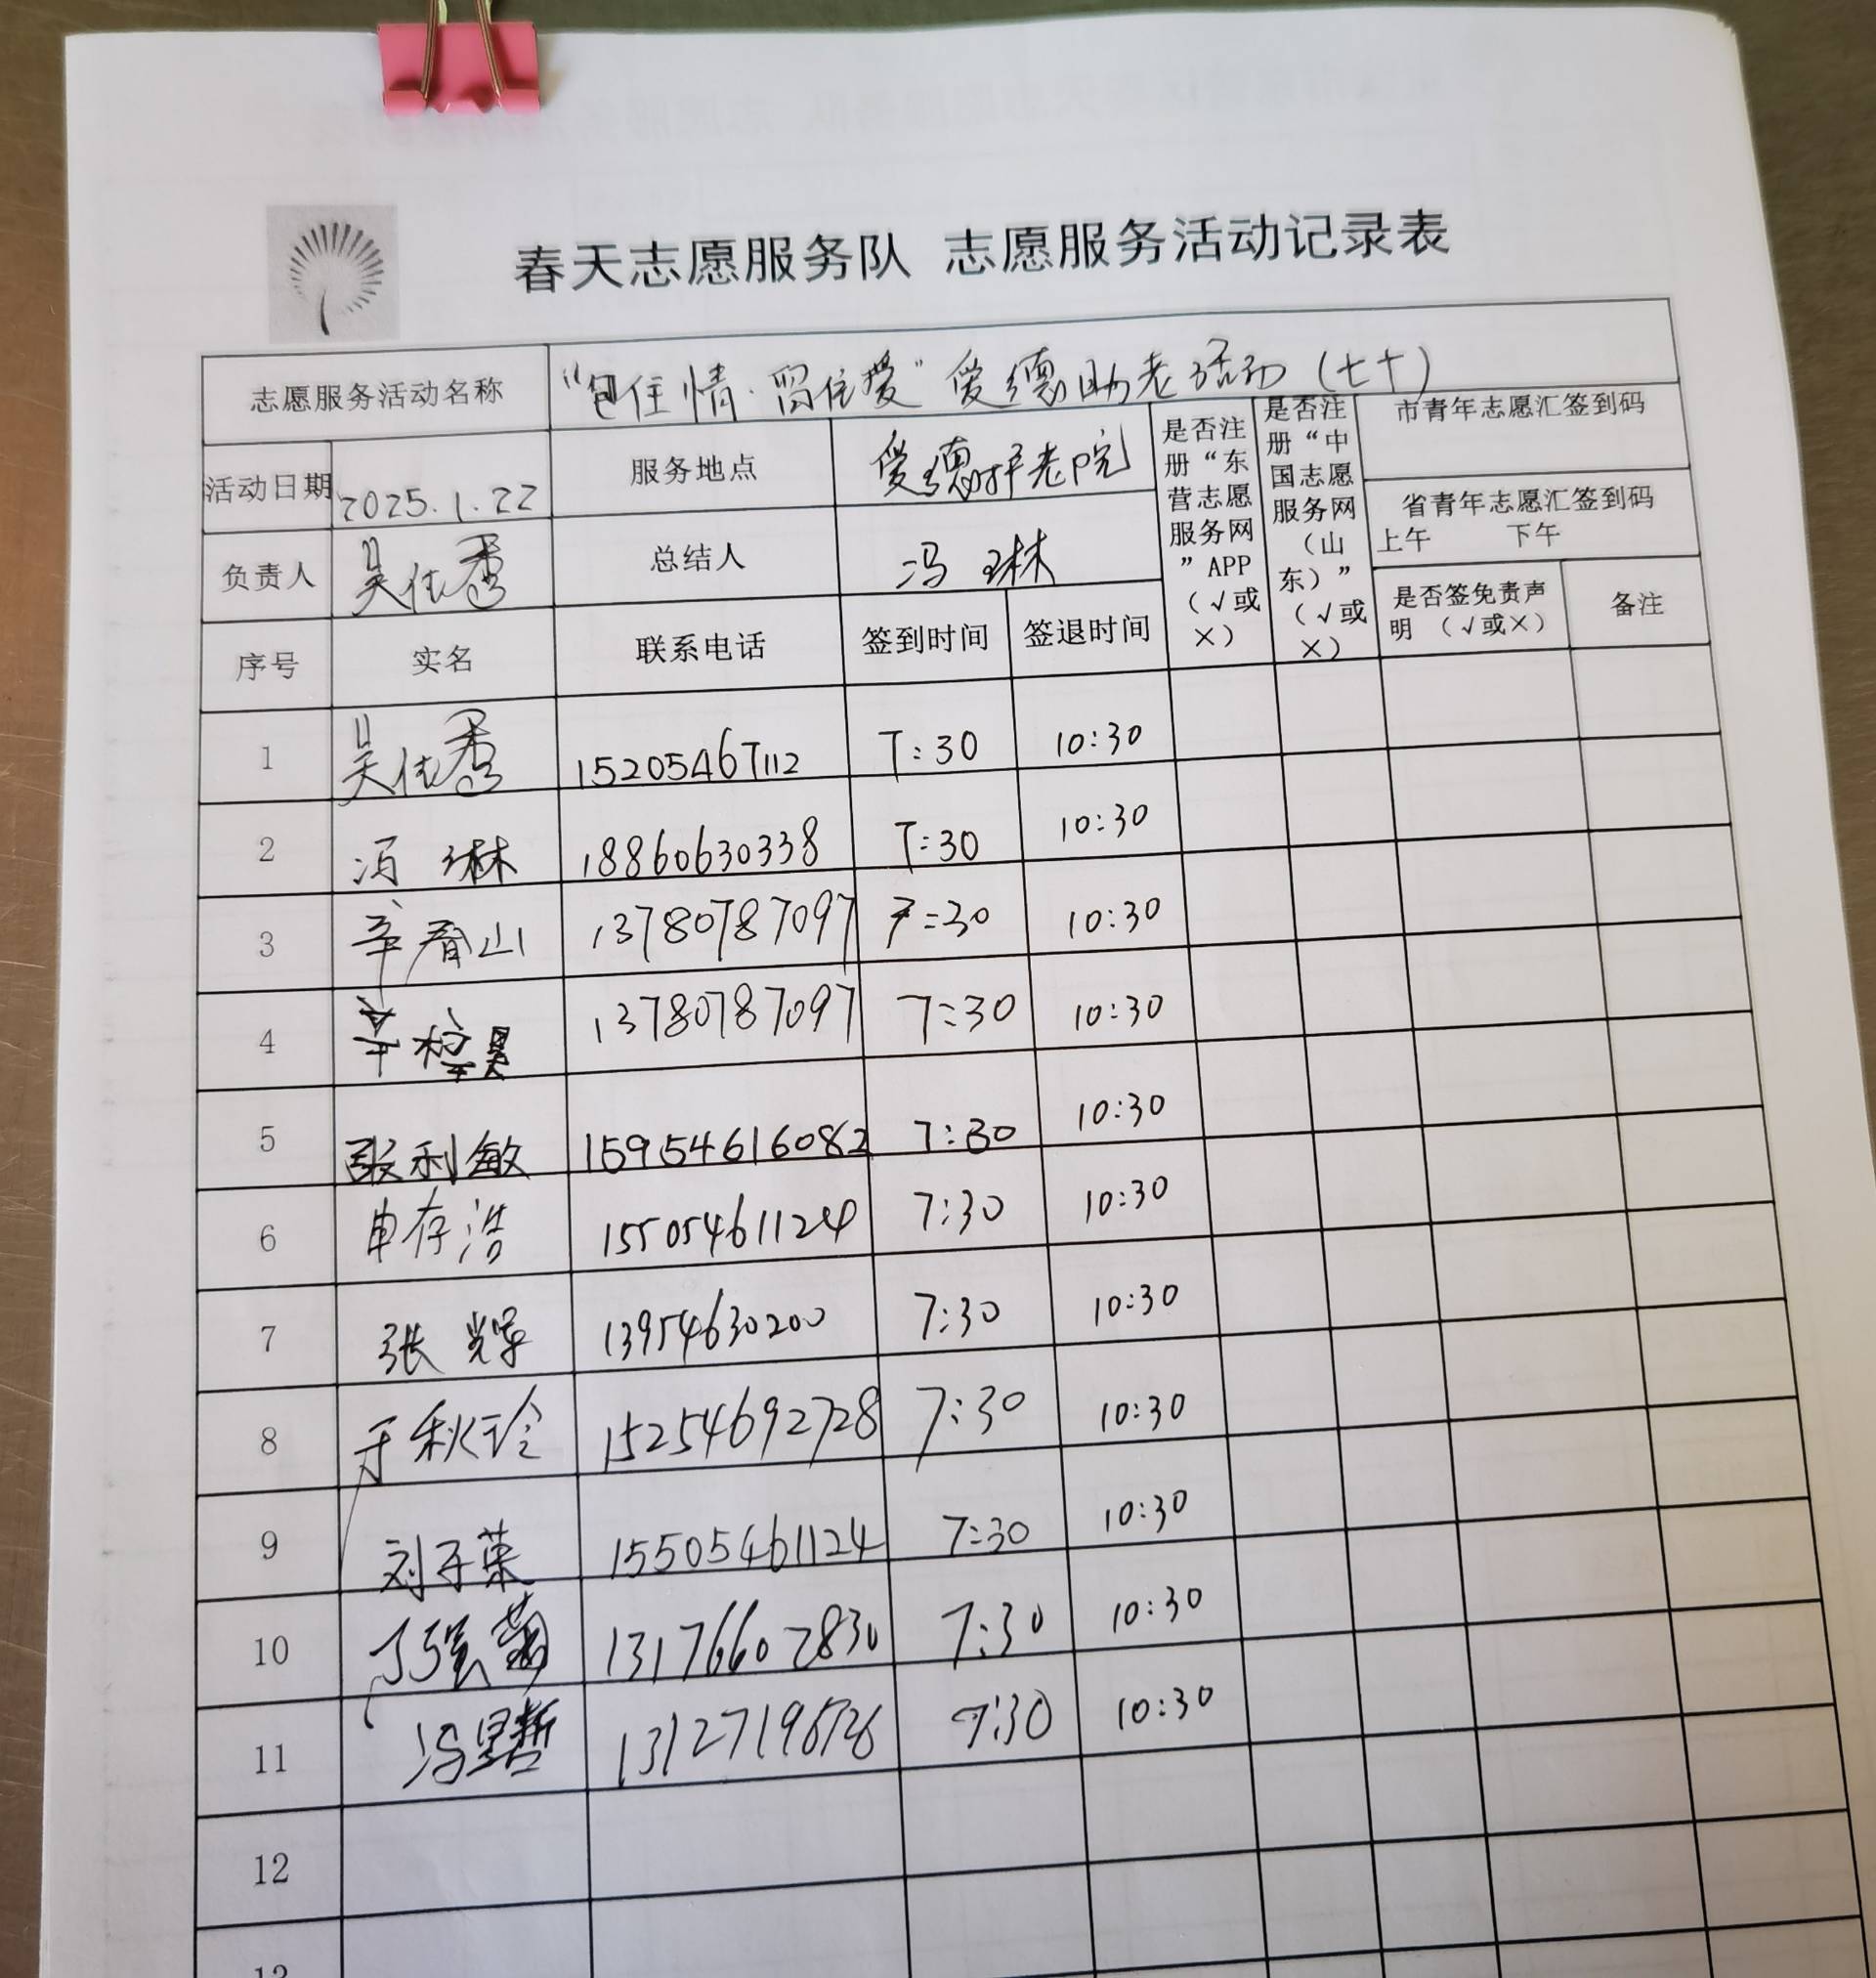 春天志愿服务队 志愿服务活动记录表
志愿服务活动名称 “包住情·留住爱”爱德助老活动(七十)
活动日期 2025.1.22 服务地点 爱德养老院 是否注册“东营志愿服务网”APP(√或×) 是否注册“中国志愿服务网(山东)”(√或×) 市青年志愿汇签到码
省青年志愿汇签到码
上午 下午
负责人 吴佳秀 总结人 冯琳
是否签免责声明 (√或×) 备注
序号 实名 联系电话 签到时间 签退时间
1 吴佳秀 15205467112 7:30 10:30
2 冯琳 18860630338 7:30 10:30
3 辛春山 13780787097 7:30 10:30
4 辛梓昊 13780787097 7:30 10:30
5 张利敏 15954616082 7:30 10:30
6 車存浩 15505461124 7:30 10:30
7 张辉 13954630200 7:30 10:30
8 于秋玲 15254692728 7:30 10:30
9 刘子荣 15505461124 7:30 10:30
10 13176602830 7:30 10:30
11 7:30 10:30
12